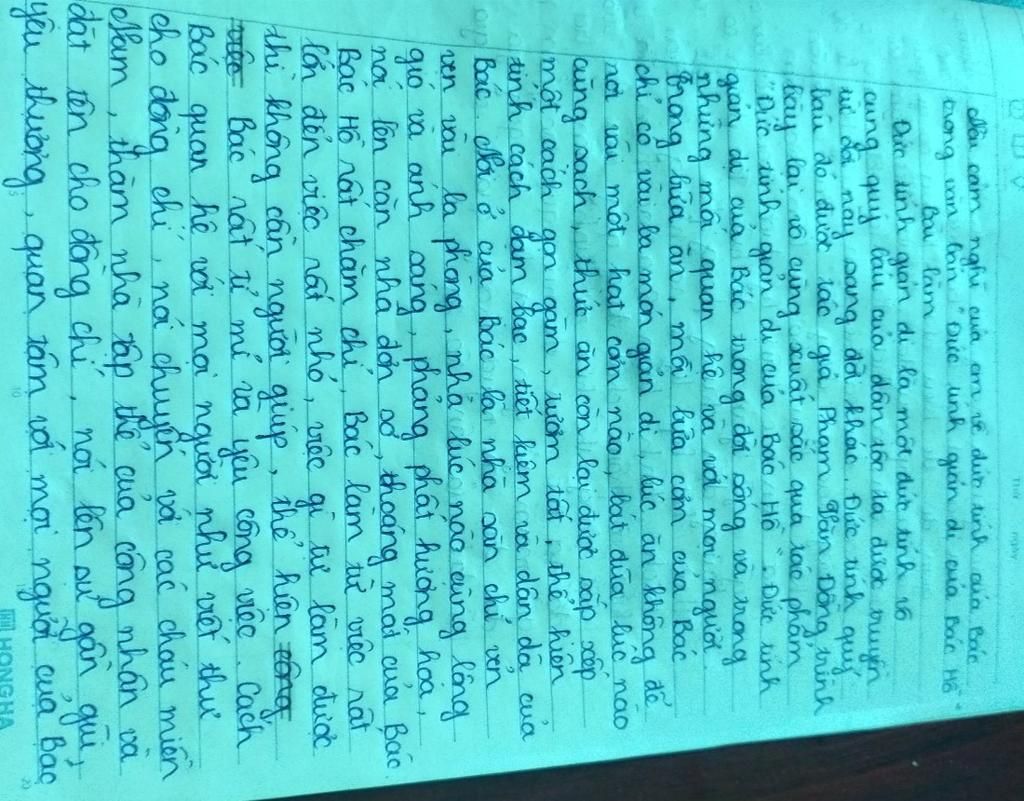 Nêu cảm nghĩ của em về đức tính của Bác
trong văn bản "Đức tính giản dị của Bác Hồ"
Bài làm
Đức tính giản dị là một đức tính vô
cùng quý báu của dân tộc ta được truyền
từ đời này sang đời khác. Đức tính quý
báu đó được tác giả Phạm Văn Đồng trình
bày lại vô cùng xuất sắc qua tác phẩm
"Đức tính giản dị của Bác Hồ". Đức tính
giản dị của Bác trong đời sống và trong
những mối quan hệ và với mọi người
Trong bữa ăn, mỗi bữa cơm của Bác
chỉ có vài ba món giản dị, lúc ăn không để
rơi vãi một hạt cơm nào, bát đũa lúc nào
cũng sạch, thức ăn còn lại được sắp xếp
một cách gọn gàm, tươm tất, thể hiện
tính cách đạm bạc, tiết kiệm và dân dã của
Bác. Nơi ở của Bác là nhà sàn chỉ vẻn
vẹn vài ba phòng, nhà lúc nào cũng lộng
gió và ánh sáng, phảng phất hương hoa,
nói lên căn nhà đơn sơ, thoáng mát của Bác
Bác Hồ rất chăm chỉ, Bác làm từ việc rất
lớn đến việc rất nhỏ, việc gì tự làm được
thì không cần người giúp, thể hiện
Bác rất tỉ mỉ và yêu công việc. Cách
Bác quan hệ với mọi người như viết thư
cho đồng chí, nói chuyện với các cháu miền
Nam, thăm nhà tập thể của công nhân và
đặt tên cho đồng chí, nói lên sự gần gũi,
yêu thương, quan tâm với mọi người của Bác
HONGHA